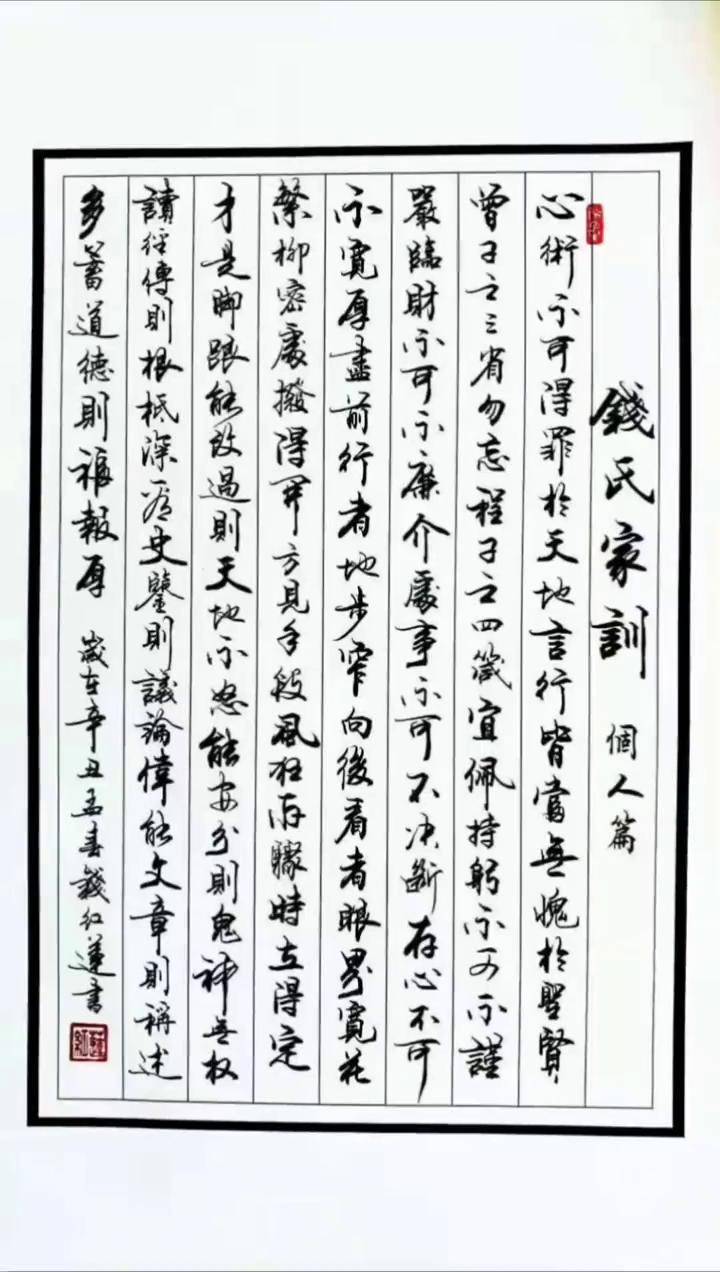 錢氏家訓 個人篇
心術不可得罪於天地言行皆當無愧於聖賢
曾子之三省勿忘程子之四箴宜佩持躬不可不謹
嚴臨財不可不廉介處事不可不決斷存心不可
不寬厚盡前行者地步窄向後看者眼界寬花
繁柳密處撥得開方見手段風狂雨驟時立得定
才是脚跟能改過則天地不怒能安分則鬼神無权
讀經傳則根柢深看史鑒則議論偉能文章則稱述
多蓄道德則福報厚 歲在辛丑孟春錢红蓮書